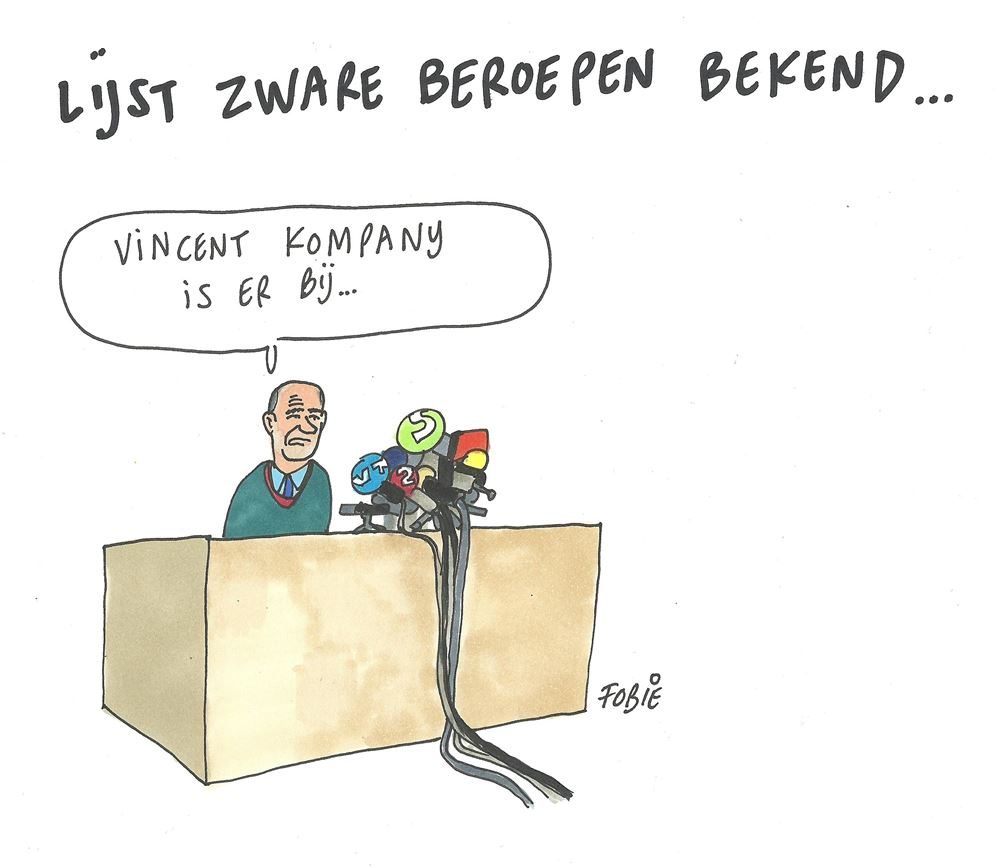 LIJST ZWARE BEROEPEN BEKEND...
VINCENT KOMPANY
IS ER BIJ...
VT
2
FOBIE